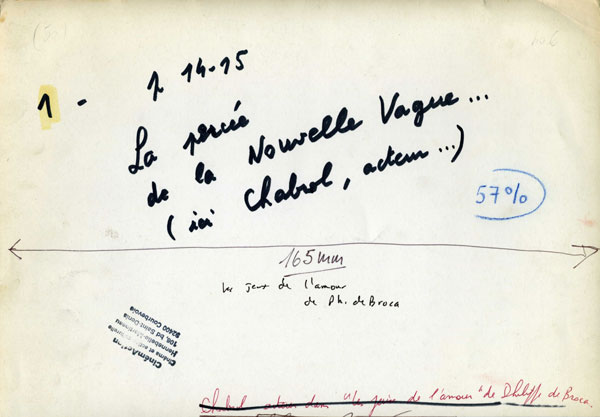 1 - p 14-15
La percée
de la Nouvelle Vague...
(ici Chabrol, acteur...)
57%
165mm
Les jeux de l'amour
de Ph. de Broca
CinémAction
106, bd Saint Denis
92400 Courbevoie
Chabrol acteur dans "Les jeux de l'amour" de Philippe de Broca.